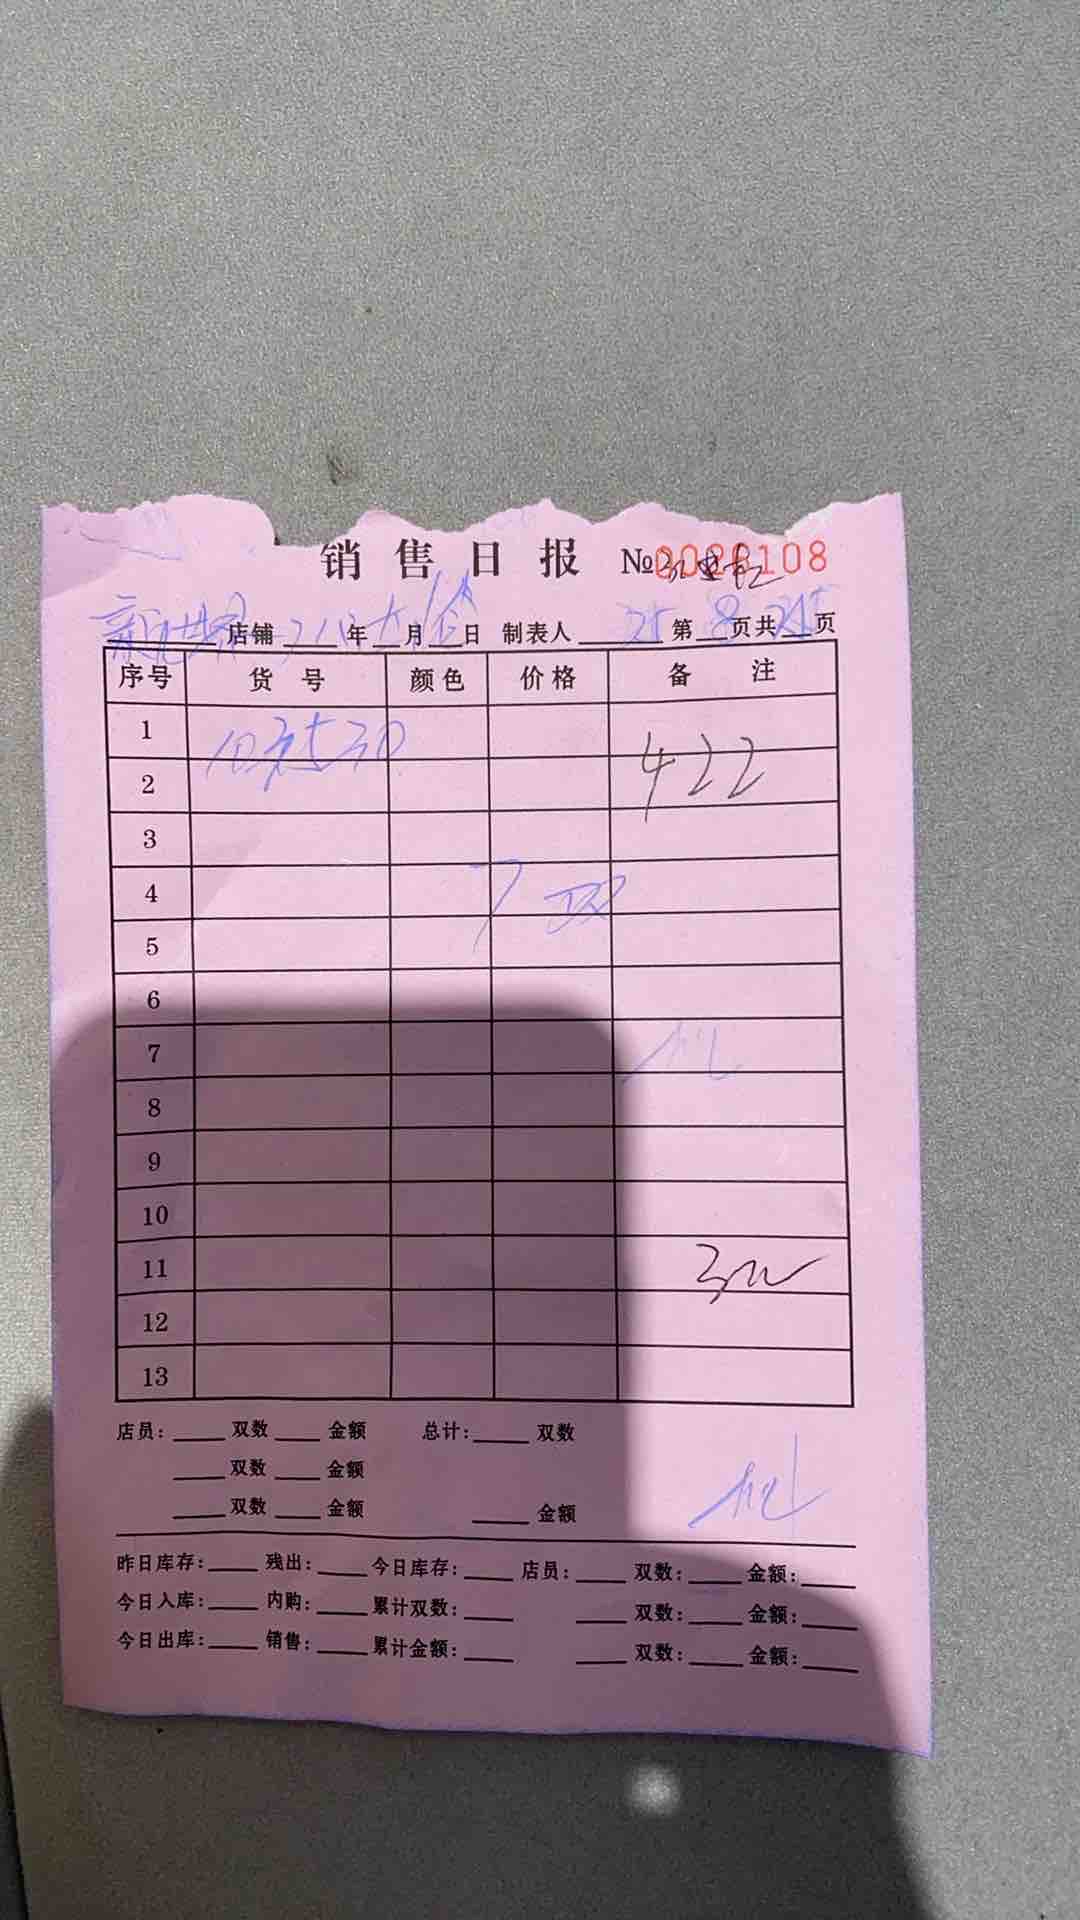 销售日报 №0028108
新世界 店铺 年 月 日 制表人 25 第 8 页共 页
序号 货号 颜色 价格 备注
1 530
2 422
3
4 7 双
5
6
7
8
9
10
11
12
13
店员: 双数 金额 总计: 双数
双数 金额
双数 金额 金额
昨日库存: 残出: 今日库存: 店员: 双数: 金额:
今日入库: 内购: 累计双数: 双数: 金额:
今日出库: 销售: 累计金额: 双数: 金额: